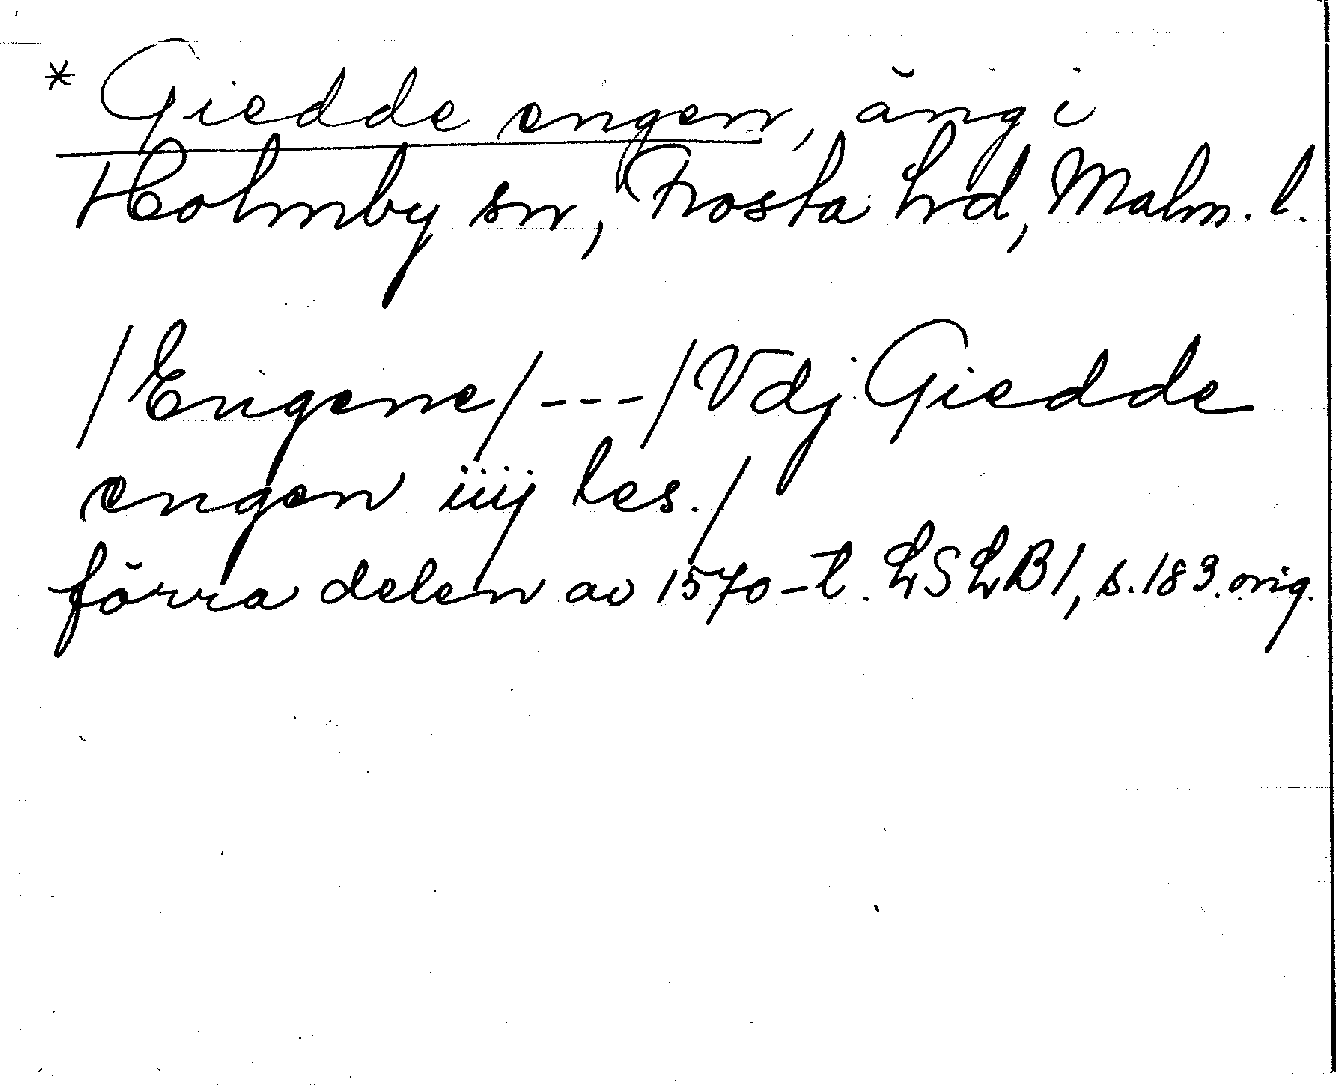 * Giedde engen, äng i
Holmby sn, Frosta hd, Malm. l.
/Engene/---/Vdj Giedde
engen iiij les./
förra delen av 1570-t. LSLB1, s.183.orig.